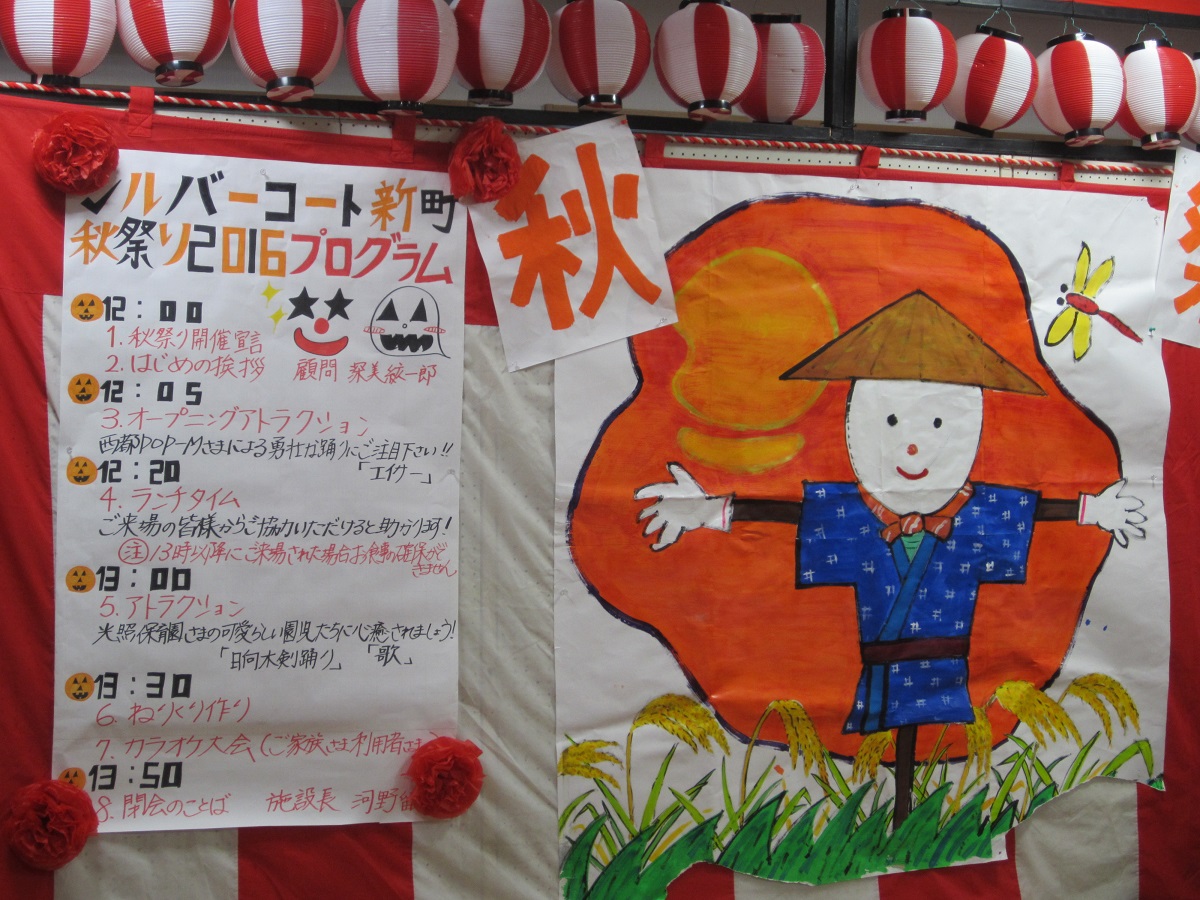 シルバーコート新町
秋祭り2016プログラム
12:00
1. 秋祭り開催宣言
2. はじめの挨拶 顧問 深美絃一郎
12:05
3. オープニングアトラクション
西都POP-Mさまによる勇壮な踊りにご注目下さい!!
「エイサー」
12:20
4. ランチタイム
ご来場の皆様からご協力いただけると助かります!
注 13時以降にご来場された場合お食事の確保ができません
13:00
5. アトラクション
光照保育園さまの可愛らしい園児たちに心癒されましょう!
「日向木剣踊り」 「歌」
13:30
6. ねりくり作り
7. カラオケ大会(ご家族さま利用者さま)
13:50
8. 閉会のことば 施設長 河野
秋